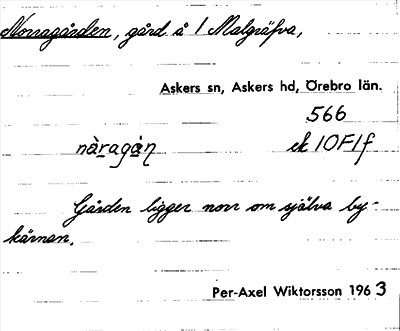 Norragården, gård å 1 Malgräfva,
Askers sn, Askers hd, Örebro län.
566
nàragȧṇ ek 10F1f
Gården ligger norr om själva by-
kärnan.
Per-Axel Wiktorsson 1963